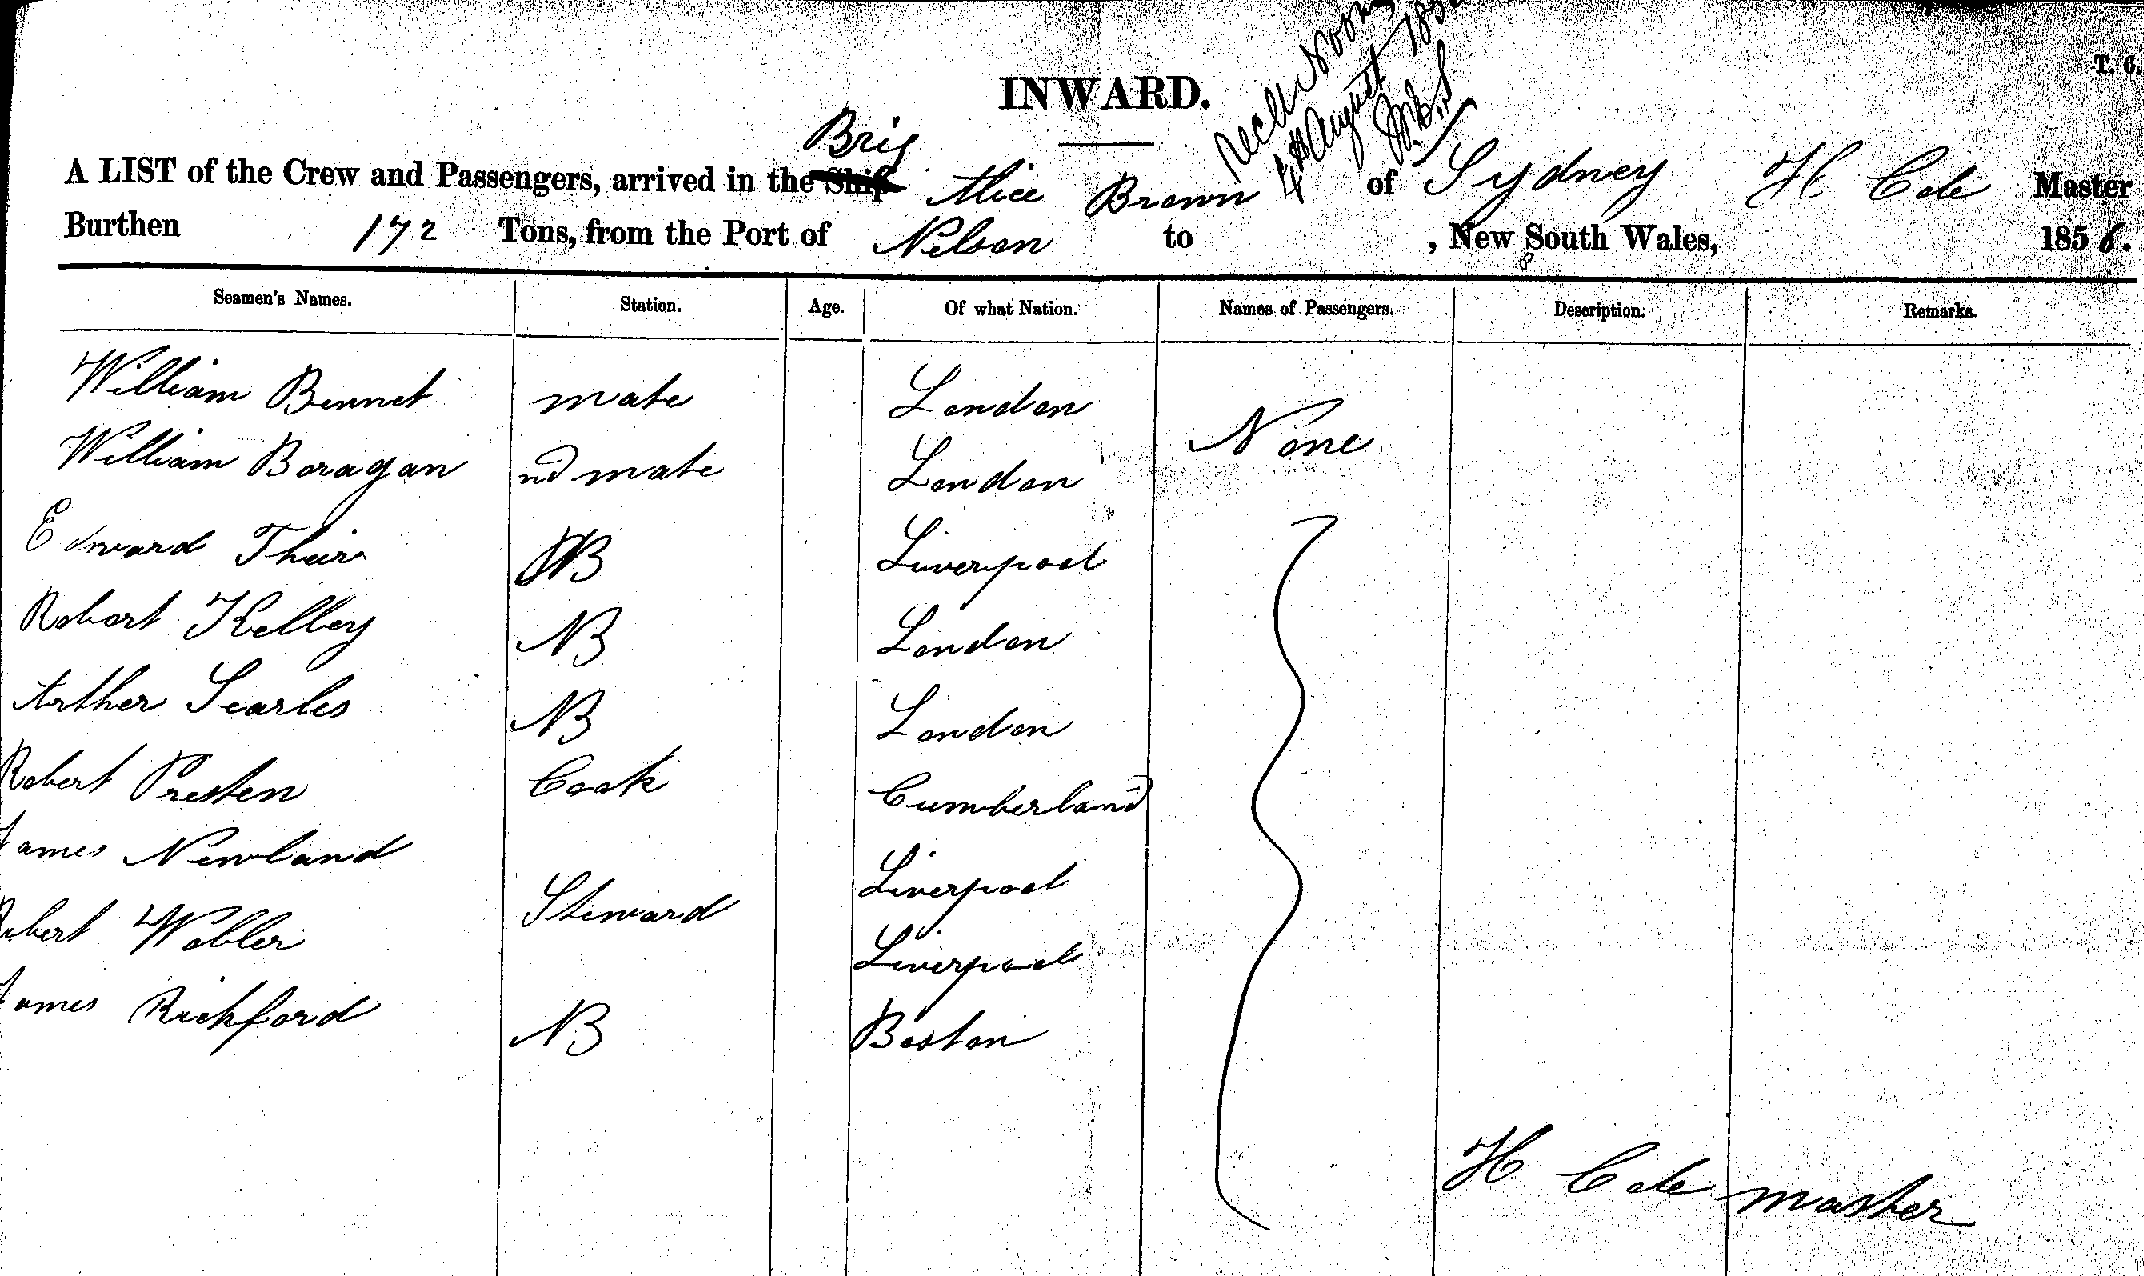 T. 6.
Noon
4th August 185
INWARD.
Brig
A LIST of the Crew and Passengers, arrived in the Ship Alice Brown of Sydney H Cole Master
Burthen 172 Tons, from the Port of Nelson to , New South Wales, 1856.
Seamen's Names. Station. Age. Of what Nation. Names of Passengers. Description. Remarks.
William Bennet mate London None
William Boragan nd mate London
Edward Thair AB Liverpool
Robert Kelley AB London
Arther Searles AB London
Robert Presten Cook Cumberland
James Newland Liverpool
Robert Wobler Steward Liverpool
James Richford AB Boston
H Cole master